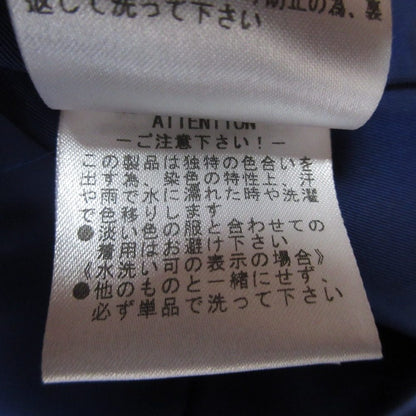 防止の為、裏
返して洗って下さい
ATTENTION
－ご注意下さい！－
この製品は独特の色合いを
出す為、染色の特性上汗
や雨、水に濡れた時や洗濯
で色移りします
●淡色の服と合わせての
着用はお避け下さい
《水洗い可の表示の場合》
●他のものと一緒にせず、
必ず単品で洗って下さい